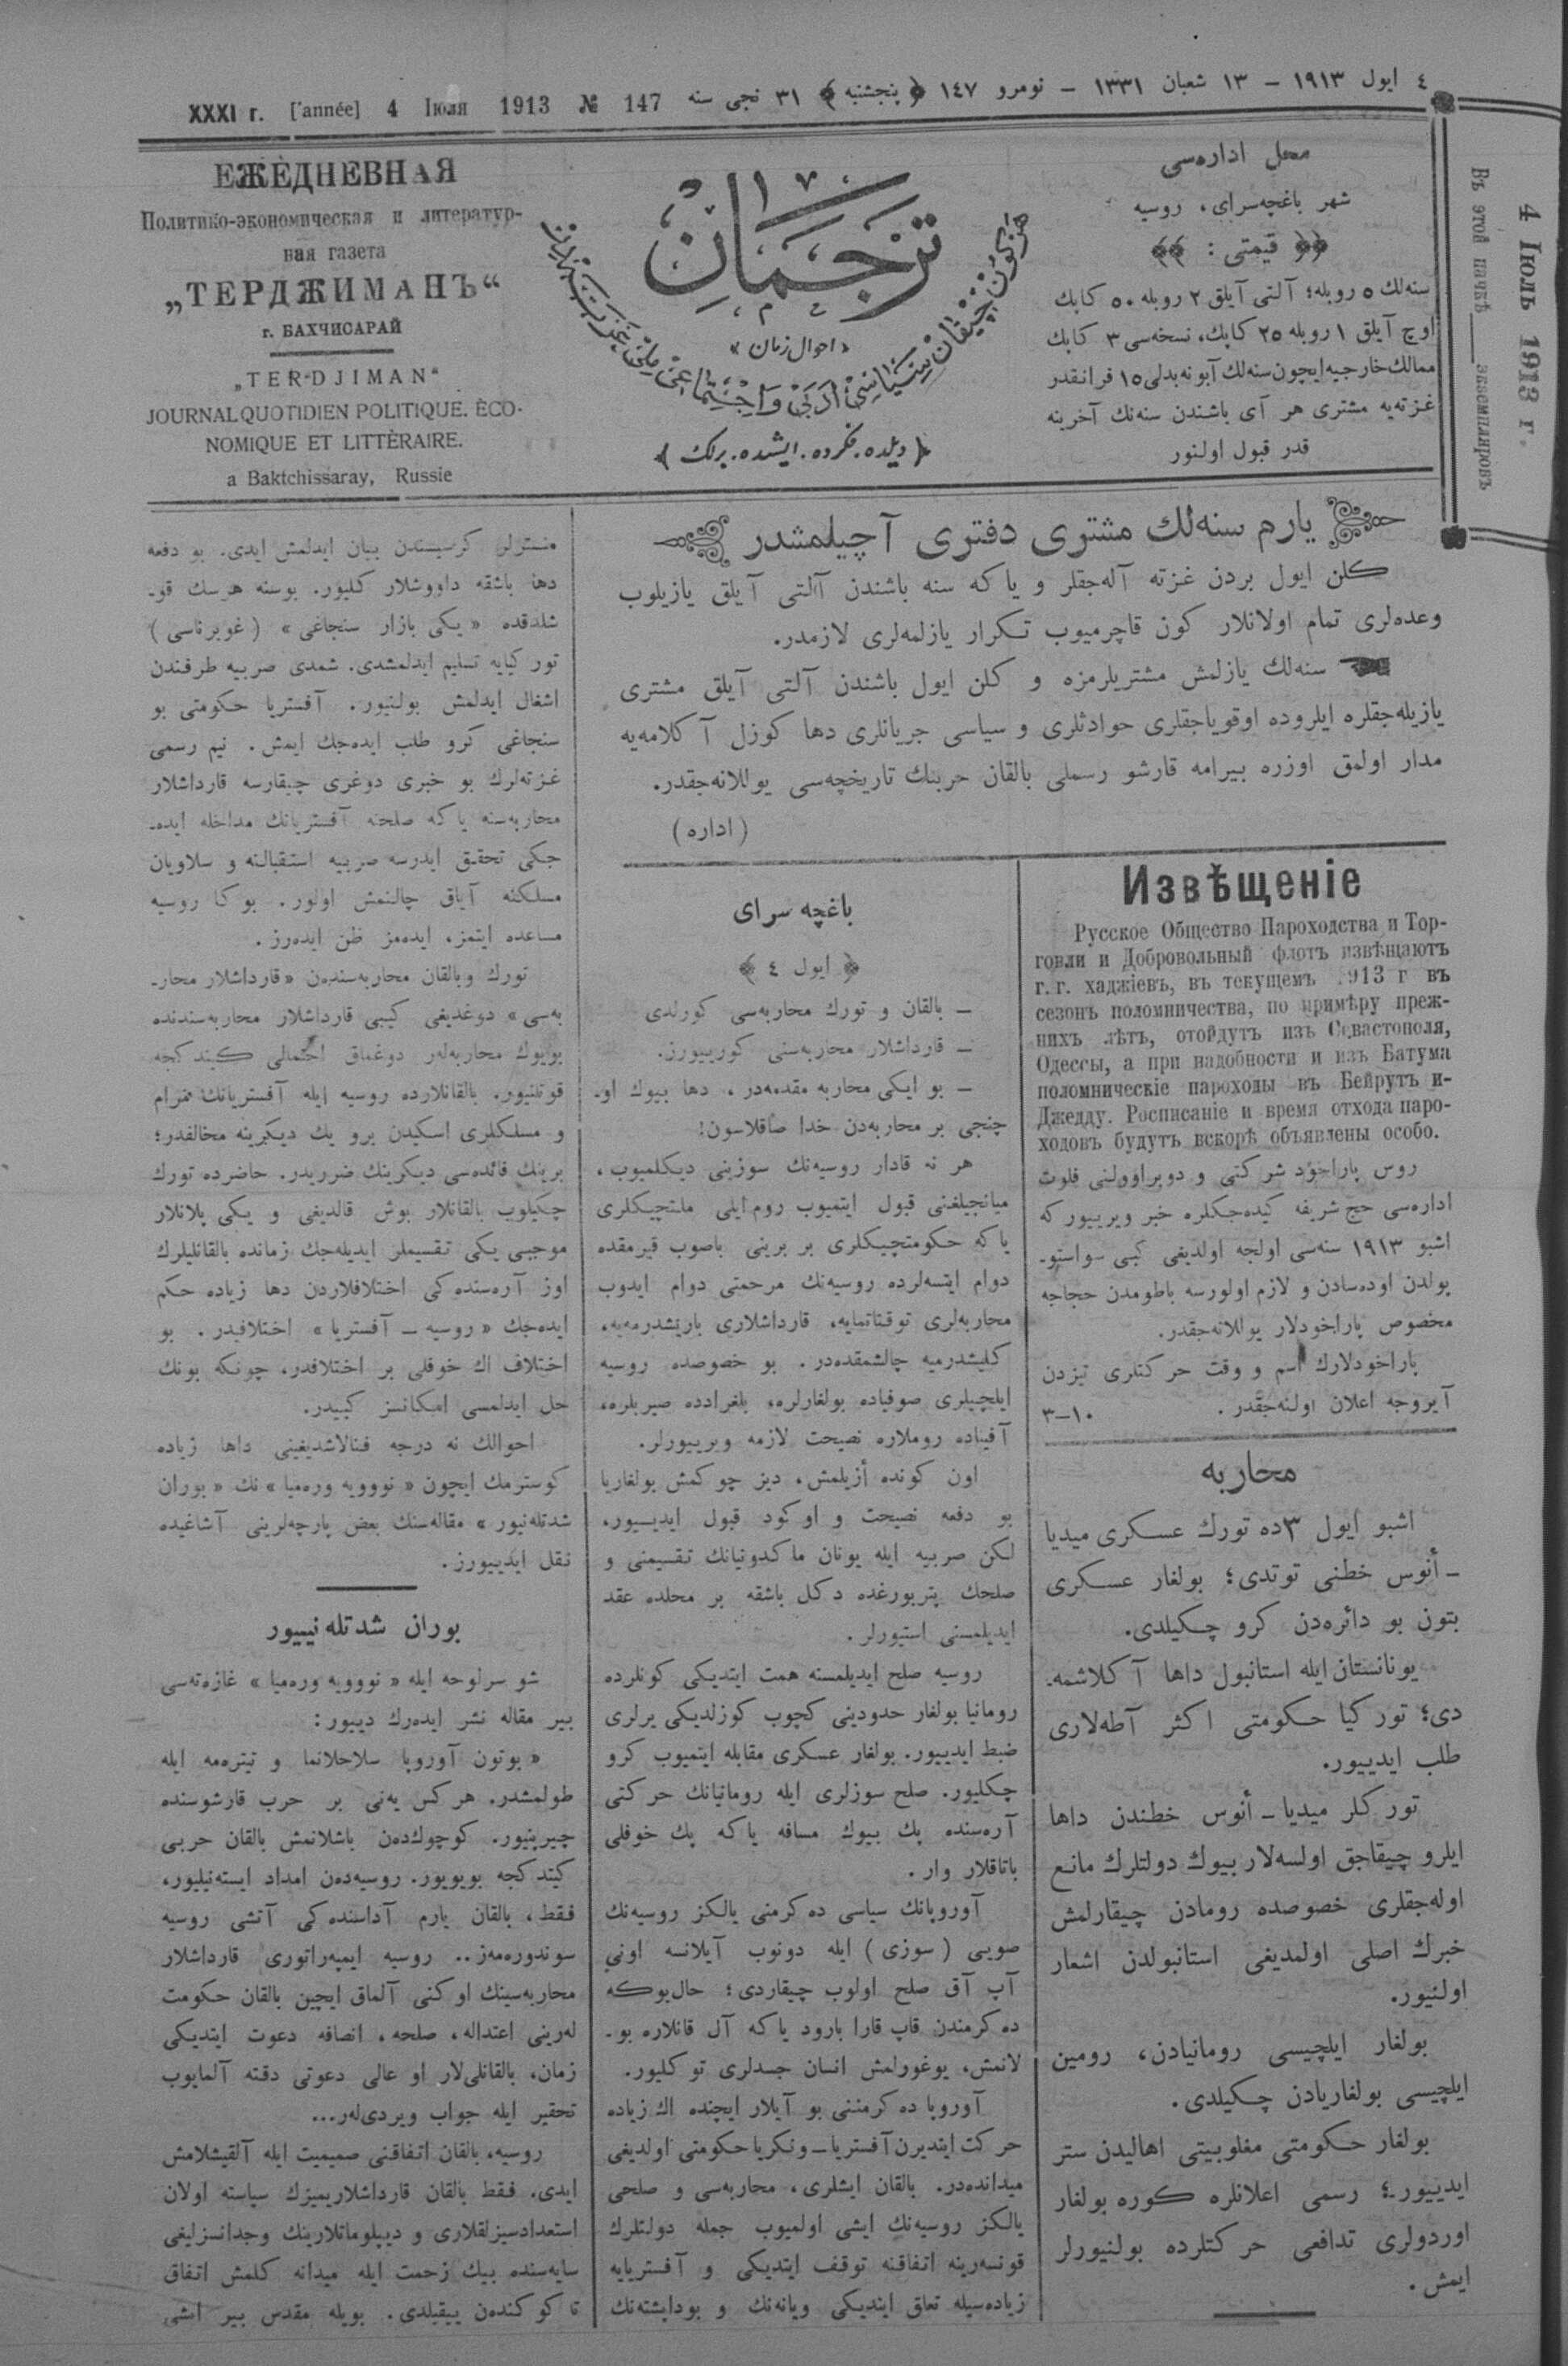 ٤ ايول ١٩١٣ – ١٣ شعبان ١٣٣١ – نومرو ١٤٧ ﴿ پنجشنبه ﴾ ٣١ نجى سنه
XXXI г. [année] 4 Іюля 1913 № 147
ЕЖЕДНЕВНАЯ
Политико-экономическая и литератур-
ная газета
„ТЕРДЖИМАНЪ“
г. БАХЧИСАРАЙ
„TERDJIMAN“
JOURNAL QUOTIDIEN POLITIQUE. ÈCO-
NOMIQUE ET LITTÈRAIRE.
a Baktchissaray, Russie
ترجمان
«احوال زمان»
﴿ ديلده. فكرده. ايشده. برلك ﴾
محل اداره‌سى
شهر باغچه‌سراى، روسيه
قيمتى :
سنه‌لك ٥ روبله؛ آلتى آيلق ٢ روبله ٥٠ كاپك
اوچ آيلق ١ روبله ٢٥ كاپك، نسخه‌سى ٣ كاپك
ممالك خارجيه ايچون سنه‌لك آبونه بدلى ١٥ فرانقدر
غزته‌يه مشترى هر آى باشندن سنه‌نك آخرينه
قدر قبول اولنور
4 Іюль 1913 г.
Въ этой пачкѣ ____ экземпляровъ
يارم سنه‌لك مشترى دفترى آچيلمشدر
كلن ايول بردن غزته آله‌جقلر و ياكه سنه باشندن آلتى آيلق يازيلوب
وعده‌لرى تمام اولانلار كون قاچرميوب تكرار يازلمه‌لرى لازمدر.
سنه‌لك يازلمش مشتريلرمزه و كلن ايول باشندن آلتى آيلق مشترى
يازيله‌جقلره ايلروده اوقوياجقلرى حوادثلرى و سياسى جريانلرى دها كوزل آكلامه‌يه
مدار اولمق اوزره بيرامه قارشو رسملى بالقان حربنك تاريخچه‌سى يوللانه‌جقدر.
(اداره)
Извѣщеніе
Русское Общество Пароходства и Тор-
говли и Добровольный флотъ извѣщаютъ
г.г. хаджіевъ, въ текущемъ 1913 г въ
сезонъ поломничества, по примѣру преж-
нихъ лѣтъ, отойдутъ изъ Севастополя,
Одессы, а при надобности и изъ Батума
поломническіе пароходы въ Бейрутъ и-
Джедду. Росписаніе и время отхода паро-
ходовъ будутъ вскорѣ объявлены особо.
روس پاراخود شركتى و دوبراوولنى فلوت
اداره‌سى حج شريفه كيده‌جكلره خبر ويرييور كه
اشبو ١٩١٣ سنه‌سى اولجه اولديغى كبى سواستو-
پولدن اوده‌سادن و لازم اولورسه باطومدن حجاجه
مخصوص پاراخودلار يوللانه‌جقدر.
پاراخودلارك اسم و وقت حركتلرى تيزدن
آيروجه اعلان اولنه‌جقدر. ٣–١٠
محاربه
اشبو ايول ٣ده تورك عسكرى ميديا
- أنوس خطنى توتدى؛ بولغار عسكرى
بتون بو دائره‌دن كرو چكيلدى.
يونانستان ايله استانبول داها آكلاشمه-
دى؛ توركيا حكومتى اكثر آطه‌لارى
طلب ايدييور.
توركلر ميديا – أنوس خطندن داها
ايلرو چيقاجق اولسه‌لار بيوك دولتلرك مانع
اوله‌جقلرى خصوصده رومادن چيقارلمش
خبرك اصلى اولمديغى استانبولدن اشعار
اولنيور.
بولغار ايلچيسى رومانيادن، رومين
ايلچيسى بولغاريادن چكيلدى.
بولغار حكومتى مغلوبيتى اهاليدن ستر
ايدييور؛ رسمى اعلانلره كوره بولغار
اوردولرى تدافعى حركتلرده بولنيورلر
ايمش.
باغچه سراى
﴿ ايول ٤ ﴾
– بالقان و تورك محاربه‌سى كورلدى
– قارداشلار محاربه‌سنى كورييورز.
– بو ايكى محاربه مقدمه‌در، دها بيوك او-
چنجى بر محاربه‌دن خدا صاقلاسون!
هر نه قادار روسيه‌نك سوزينى ديكلميوب،
ميانجيلغنى قبول ايتميوب روم‌ايلى ملتچيكلرى
ياكه حكومتچيكلرى بر برينى باصوب قيرمقده
دوام ايتسه‌لرده روسيه‌نك مرحمتى دوام ايدوب
محاربه‌لرى توقتاتمايه، قارداشلارى باريشدرمه‌يه،
كليشدرميه چالشمقده‌در. بو خصوصده روسيه
ايلچيلرى صوفياده بولغارلره، بلغرادده صيربلره،
آفيناده روملاره نصيحت لازمه ويرييورلر.
اون كونده أزيلمش، ديز چوكمش بولغاريا
بو دفعه نصيحت و اوكود قبول ايدييور،
لكن صربيه ايله يونان ماكدونيانك تقسيمنى و
صلحك پتربورغده دكل باشقه بر محلده عقد
ايديلمسنى استيورلر.
روسيه صلح ايديلمسنه همت ايتديكى كونلرده
رومانيا بولغار حدودينى كچوب كوزلديكى يرلرى
ضبط ايدييور. بولغار عسكرى مقابله ايتميوب كرو
چكليور. صلح سوزلرى ايله رومانيانك حركتى
آره‌سنده پك بيوك مسافه ياكه پك خوفلى
باتاقلار وار.
آوروپانك سياسى ده‌كرمنى يالكز روسيه‌نك
صويى (سوزى) ايله دونوب آيلانسه اونى
آپ آق صلح اولوب چيقاردى؛ حال‌بوكه
ده‌كرمندن قاپ قارا بارود ياكه آل قانلاره بو-
لانمش، يوغورلمش انسان جسدلرى توكليور.
آوروپا ده‌كرمننى بو آيلار ايچنده اك زياده
حركت ايتديرن آفستريا – ونكريا حكومتى اولديغى
ميدانده‌در. بالقان ايشلرى، محاربه‌سى و صلحى
يالكز روسيه‌نك ايشى اولميوب جمله دولتلرك
قونسه‌رينه اتفاقنه توقف ايتديكى و آفسترياييه
زياده‌سيله تعلق ايتديكى ويانه‌نك و بوداپشته‌نك
منسترلر كرسيسندن بيان ايدلمش ايدى. بو دفعه
دها باشقه داووشلار كليور. بوسنه هرسك قو-
شلدقده «يكى بازار سنجاغى» (غوبرناسى)
توركيايه تسليم ايدلمشدى. شمدى صربيه طرفندن
اشغال ايدلمش بولنيور. آفستريا حكومتى بو
سنجاغى كرو طلب ايده‌جك ايمش. نيم رسمى
غزته‌لرك بو خبرى دوغرى چيقارسه قارداشلار
محاربه‌سنه ياكه صلحنه آفستريانك مداخله ايده-
جكى تحقق ايدرسه صربيه استقبالنه و سلاويان
مسلكنه آياق چالنمش اولور. بوكا روسيه
مساعده ايتمز، ايده‌مز ظن ايده‌رز.
تورك و بالقان محاربه‌سندن «قارداشلار محار-
به‌سى» دوغديغى كيبى قارداشلار محاربه‌سندنده
بويوك محاربه‌لر دوغماق احتمالى كيتدكجه
قوتلنيور. بالقانلارده روسيه ايله آفستريانك مرام
و مسلكلرى اسكيدن برو يك ديكرينه مخالفدر؛
برينك فائده‌سى ديكرينك ضرريدر. حاضرده تورك
چكيلوب بالقانلار بوش قالديغى و يكى پلانلار
موجبى يكى تقسيملر ايديله‌جك زمانده بالقانليلرك
اوز آره‌سنده‌كى اختلافلاردن دها زياده حكم
ايده‌جك «روسيه – آفستريا» اختلافيدر. بو
اختلاف اك خوفلى بر اختلافدر، چونكه بونك
حل ايدلمسى امكانسز كبيدر.
احوالك نه درجه فنالاشديغينى داها زياده
كوسترمك ايچون «نوويه وره‌ميا» نك «بوران
شدتله‌نيور» مقاله‌سنك بعض پارچه‌لرينى آشاغيده
نقل ايدييورز.
بوران شدتله‌نييور
شو سرلوحه ايله «نوويه وره‌ميا» غازه‌ته‌سى
بير مقاله نشر ايده‌رك دييور:
«بوتون آوروپا سلاحلانما و تيتره‌مه ايله
طولمشدر. هركس يه‌نى بر حرب قارشوسنده
چيرپنيور. كوچوك‌دن باشلانمش بالقان حربى
كيتدكجه بويويور. روسيه‌دن امداد ايسته‌نيليور،
فقط، بالقان يارم آداسنده‌كى آتشى روسيه
سوندوره‌مه‌ز.. روسيه ايمپه‌راتورى قارداشلار
محاربه‌سينك اوكنى آلماق ايچين بالقان حكومت
له‌رينى اعتداله، صلحه، انصافه دعوت ايتديكى
زمان، بالقانلى‌لار او عالى دعوتى دقته آلمايوب
تحقير ايله جواب ويردى‌لر...
روسيه، بالقان اتفاقنى صميميت ايله آلقيشلامش
ايدى. فقط بالقان قارداشلاريميزك سياسته اولان
استعدادسيزلقلارى و ديپلوماتلارينك وجدانسزليغى
سايه‌سنده بيك زحمت ايله ميدانه كلمش اتفاق
تا كوكندن ييقيلدى. بويله مقدس بير ايشى